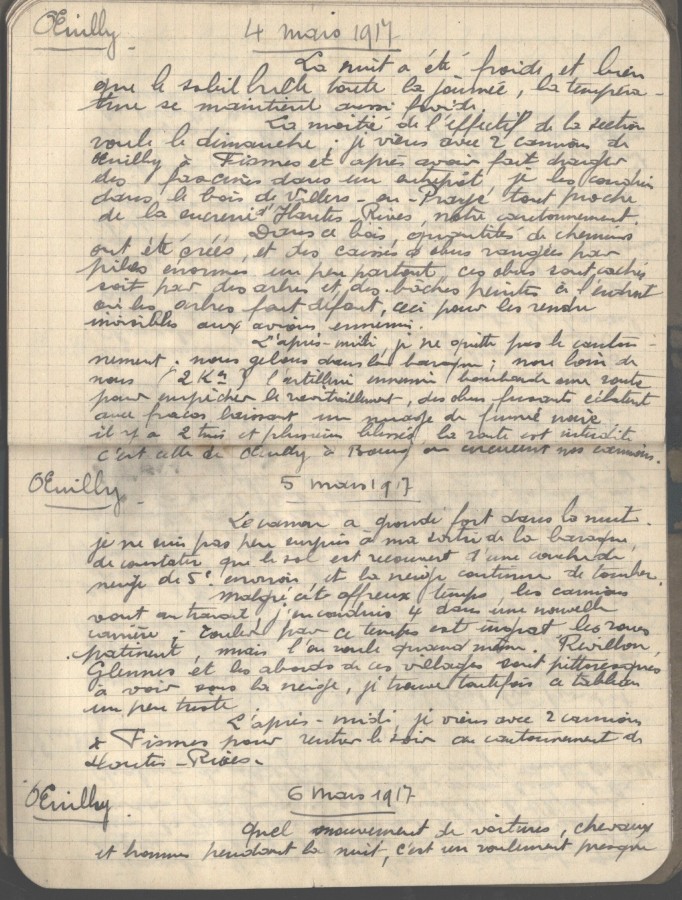 Œuilly. 4 mars 1917
La nuit a été froide et bien
que le soleil brille toute la journée, la tempéra-
ture se maintient aussi froide.
La moitié de l'effectif de la section
roule le dimanche ; je viens avec 2 camions de
Œuilly à Fismes et après avoir fait charger
des fascines dans un entrepôt je les conduis
dans le bois de Villers-en-Prayé tout proche
de la sucrerie d'Hautes-Rives, notre cantonnement.
Dans ce bois, quantités de chemins
ont été créés, et des caisses d'obus rangées par
piles énormes un peu partout, ces obus sont cachés
soit par des arbres et des bâches peintes à l'endroit
où les arbres font défaut, ceci pour les rendre
invisibles aux avions ennemis.
L'après-midi, je ne quitte pas le canton-
nement ; nous gelons dans la baraque ; non loin de
nous (2 Km) l'artillerie ennemie bombarde une route
pour empêcher le ravitaillement, des obus fusants éclatent
avec fracas laissant un nuage de fumée noire
il y a 2 tués et plusieurs blessés, la route est interdite
c'est celle de Œuilly à Bourg où circulent nos camions.
Œuilly. 5 mars 1917
Le canon a grondé fort dans la nuit.
je ne suis pas peu surpris à ma sortie de la baraque,
de constater que le sol est recouvert d'une couche de
neige de 5c environ, et la neige continue de tomber.
Malgré cet affreux temps, les camions
vont au travail, j'en conduis 4 dans une nouvelle
carrière ; rouler par ce temps est ingrat les roues
patinent, mais l'on roule quand même. Révillon,
Glennes et les abords de ces villages sont pittoresques
à voir sous la neige, je trouve toutefois ce tableau
un peu triste.
L'après-midi, je viens avec 2 camions
à Fismes pour rentrer le soir au cantonnement de
Hautes-Rives.
Œuilly. 6 mars 1917
Quel mouvement de voitures, chevaux
et hommes pendant la nuit, c'est un roulement presque